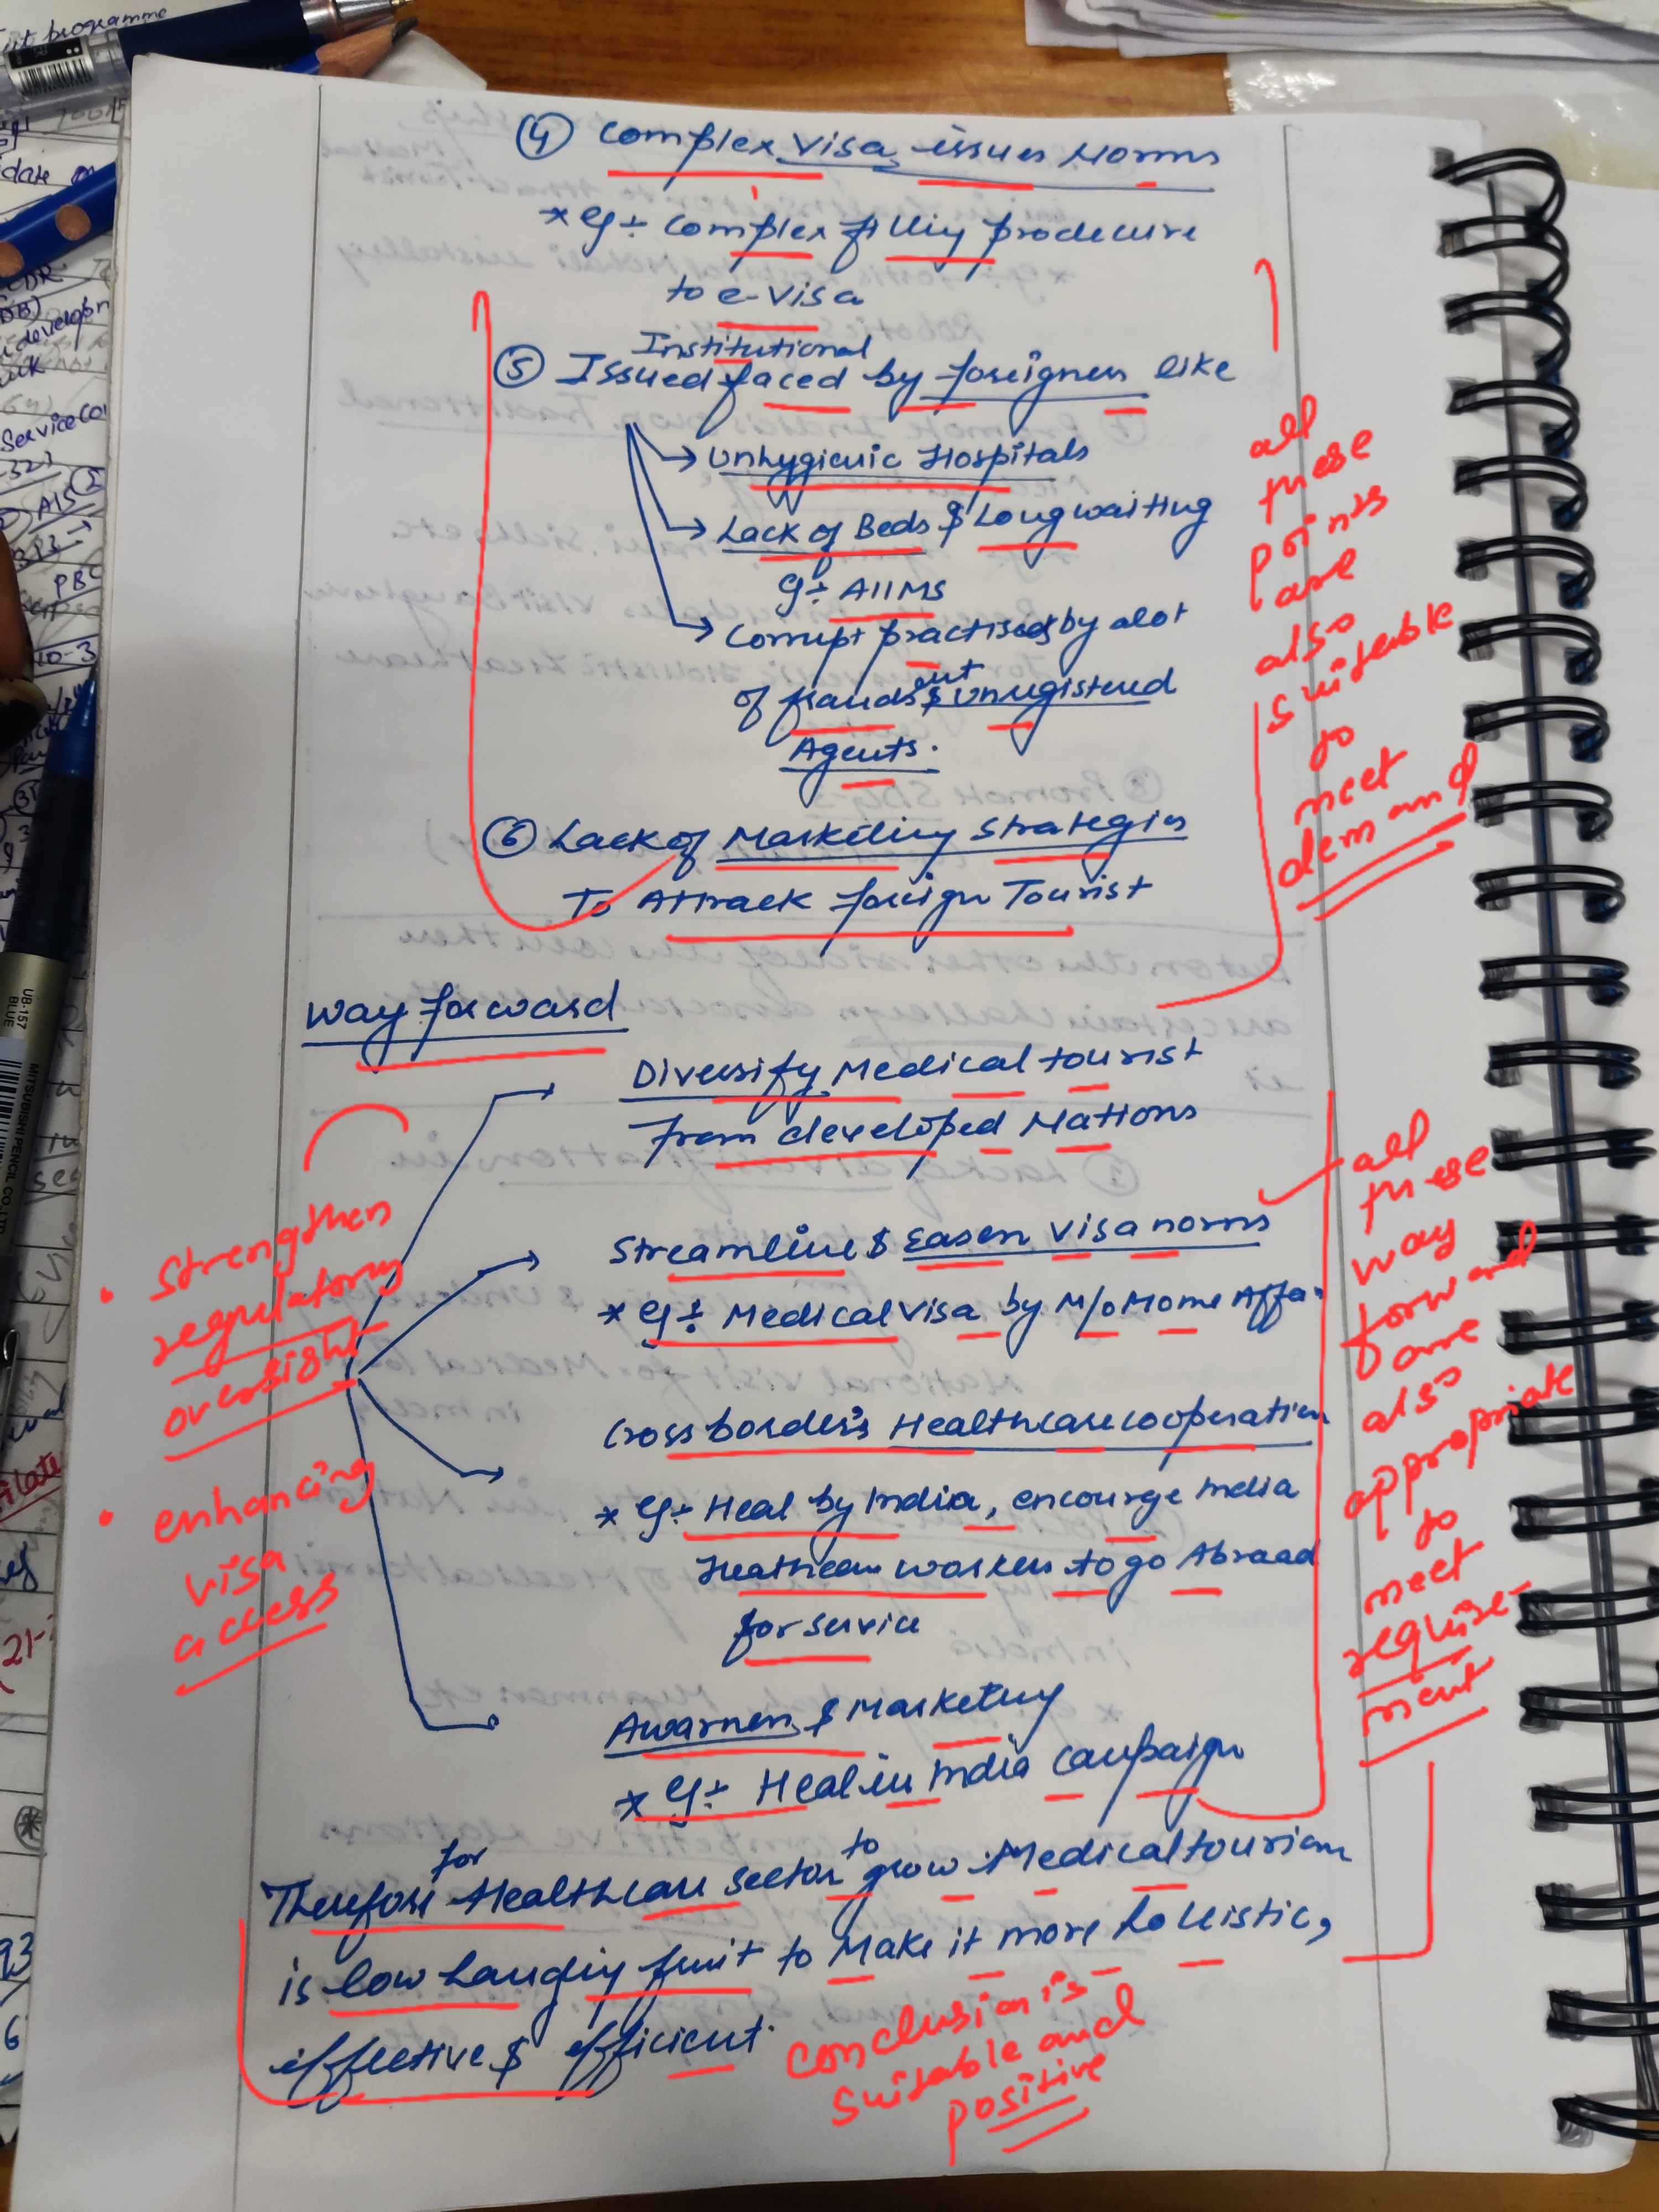 ④ Complex Visa issues Norms
* eg:- Complex filling prodecure
to e-Visa
Institutional
⑤ Issued faced by foreigners like
→ Unhygienic Hospitals
→ Lack of Beds & Long waiting
eg:- AIIMS
→ Corrupt practised by alot
of frauds & Unregistered
Agents.
⑥ Lack of Marketing Strategies
To Attrack foreign Tourist
all
these
points
are
also
suitable
to
meet
demand
Way forward
Diversify Medical tourist
from developed Nations
Streamline & Easen Visa norms
* eg:- Medical Visa by M/o Home Affair
Cross border's Healthcare cooperation
* eg:- Heal by India, encourge India
Heathcare workers to go Abroad
for service
Awarness & Marketing
* eg:- Heal in India campaign
• Strengthen
regulatory
oversight
• enhancing
visa
access
all
these
way
forward
are
also
appropriate
to
meet
require-
ment
for to
Therefore Healthcare sector grow Medical tourism
is low hanging fruit to Make it more hollistic,
effective & efficient.
Conclusion is
suitable and
positive
UB-157
BLUE
MITSUBISHI PENCIL CO., LTD
programme
date
Service
AIS
PBC
10-3
21-
93
6